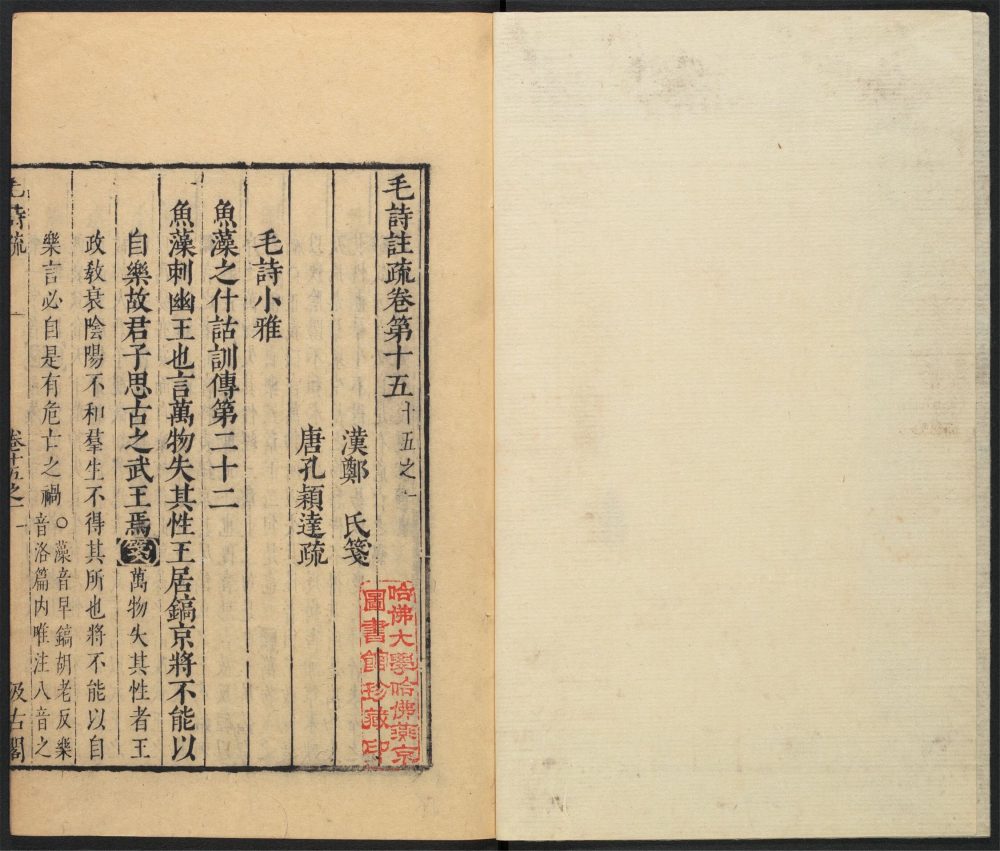 毛詩註疏卷第十五 十五之一
漢鄭 氏箋
唐孔穎達疏
毛詩小雅
魚藻之什詁訓傳第二十二
魚藻刺幽王也言萬物失其性王居鎬京將不能以
自樂故君子思古之武王焉【箋】萬物失其性者王
政敎衰陰陽不和羣生不得其所也將不能以自
樂言必自是有危亡之禍○藻音早鎬胡老反樂
音洛篇内唯注八音之
毛詩疏 卷十五之一 一 汲古閣
哈佛大學哈佛燕京
圖書館珍藏印